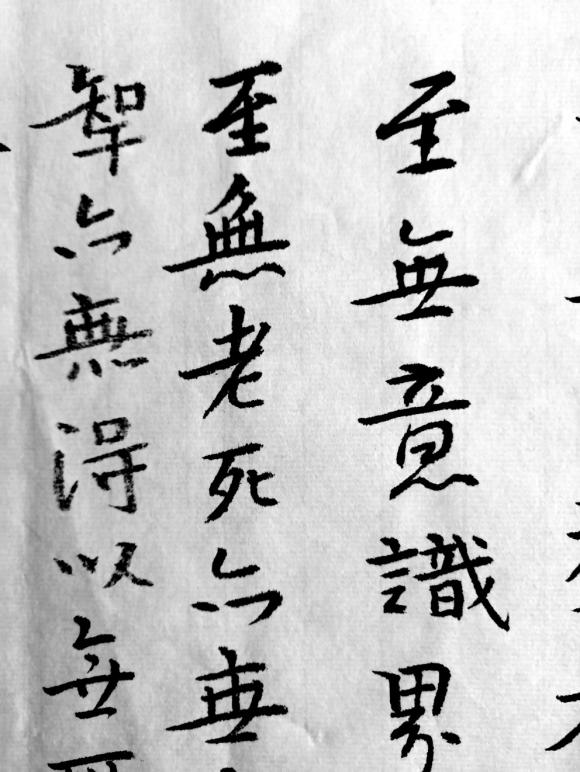 至無意識界
至無老死亦無
智亦無得以無